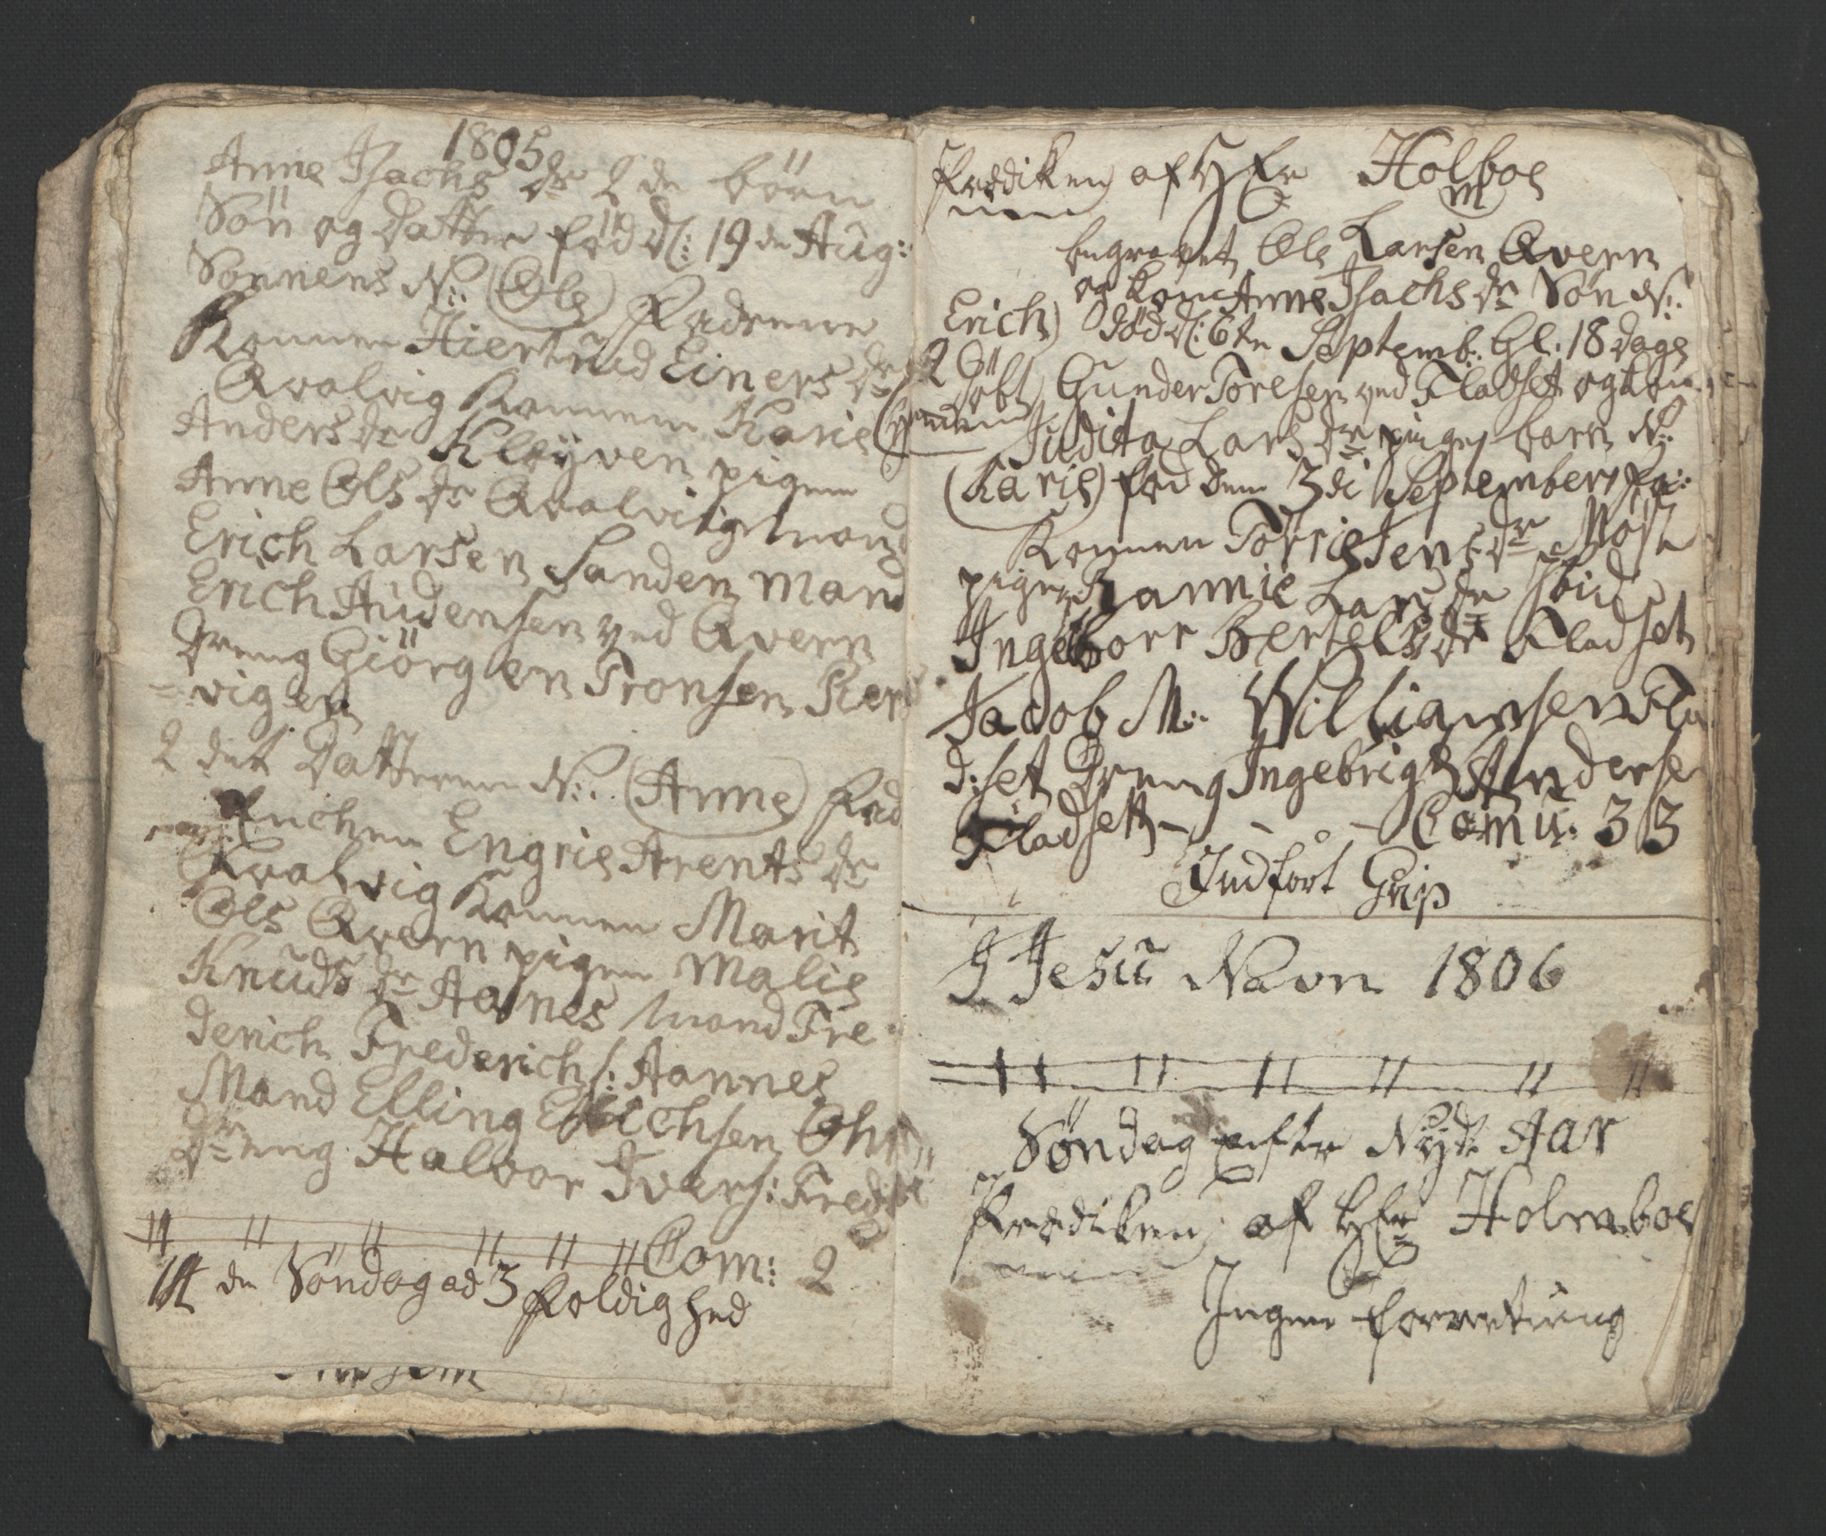 1805
Anne Isachs dr 2 de börn
Sön og Datter fød d: 19 de Aug:
Sønnens N: (Ole) Fadderne
Konnen Hiertrud Einers dr
Qvalvig Konnen Karie
Anders dr Kleyven pigen
Anne Ols dr Qvalvig mand
Erich Larsen Sanden Mand
Erich Audensen ved Qvern
Dreng Giörgen Tronsen
vigen
2 det Datteren N: (Anne) Fad
Enchen Engrie Arents dr
Qvalvig Konnen Marit
Ols Qvern pigen Malie
Knuds dr Aanes Mand Fre
derich Frederichs: Aannes
Mand Elling Erichsen
Dreng Halvor Ivers:
Com: 2
14 de Söndag ad 3 foldighed
Prædiken af H Hr Holboe
m
begravet Ole Larsen Qvern
og kone Anne Isachs dr Søn N:
Erich) död d: 6 te Septemb. Gl. 18 dage
2 döbt Gunder Toresen ved Fladset og
Judita Lars dr piges barn N:
(Karie) fød den 3 di September fa:
Konnen Torrie Tens dr
pigen Lars dr
Ingeborr Bertels dr Fladset
Jacob M: Williamsen Fla
d:set Dreng Ingebrigt Anderse
Fladset - - - Comu: 33
Indfört Grip
I Jesu Navn 1806
Söndag efter Nyt Aar
Prædiken af H Hr Holmboe
Ingen forretning